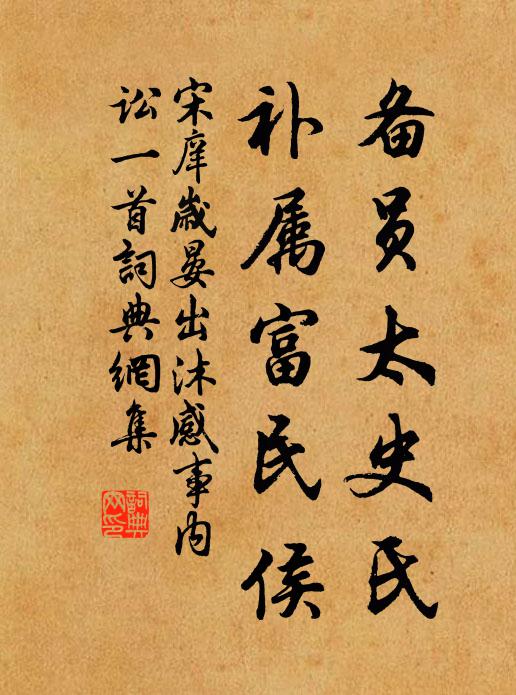 备员太史氏
补属富民侯
宋庠岁晏出沐感事内
讼一首詞典網集
詞典
网印